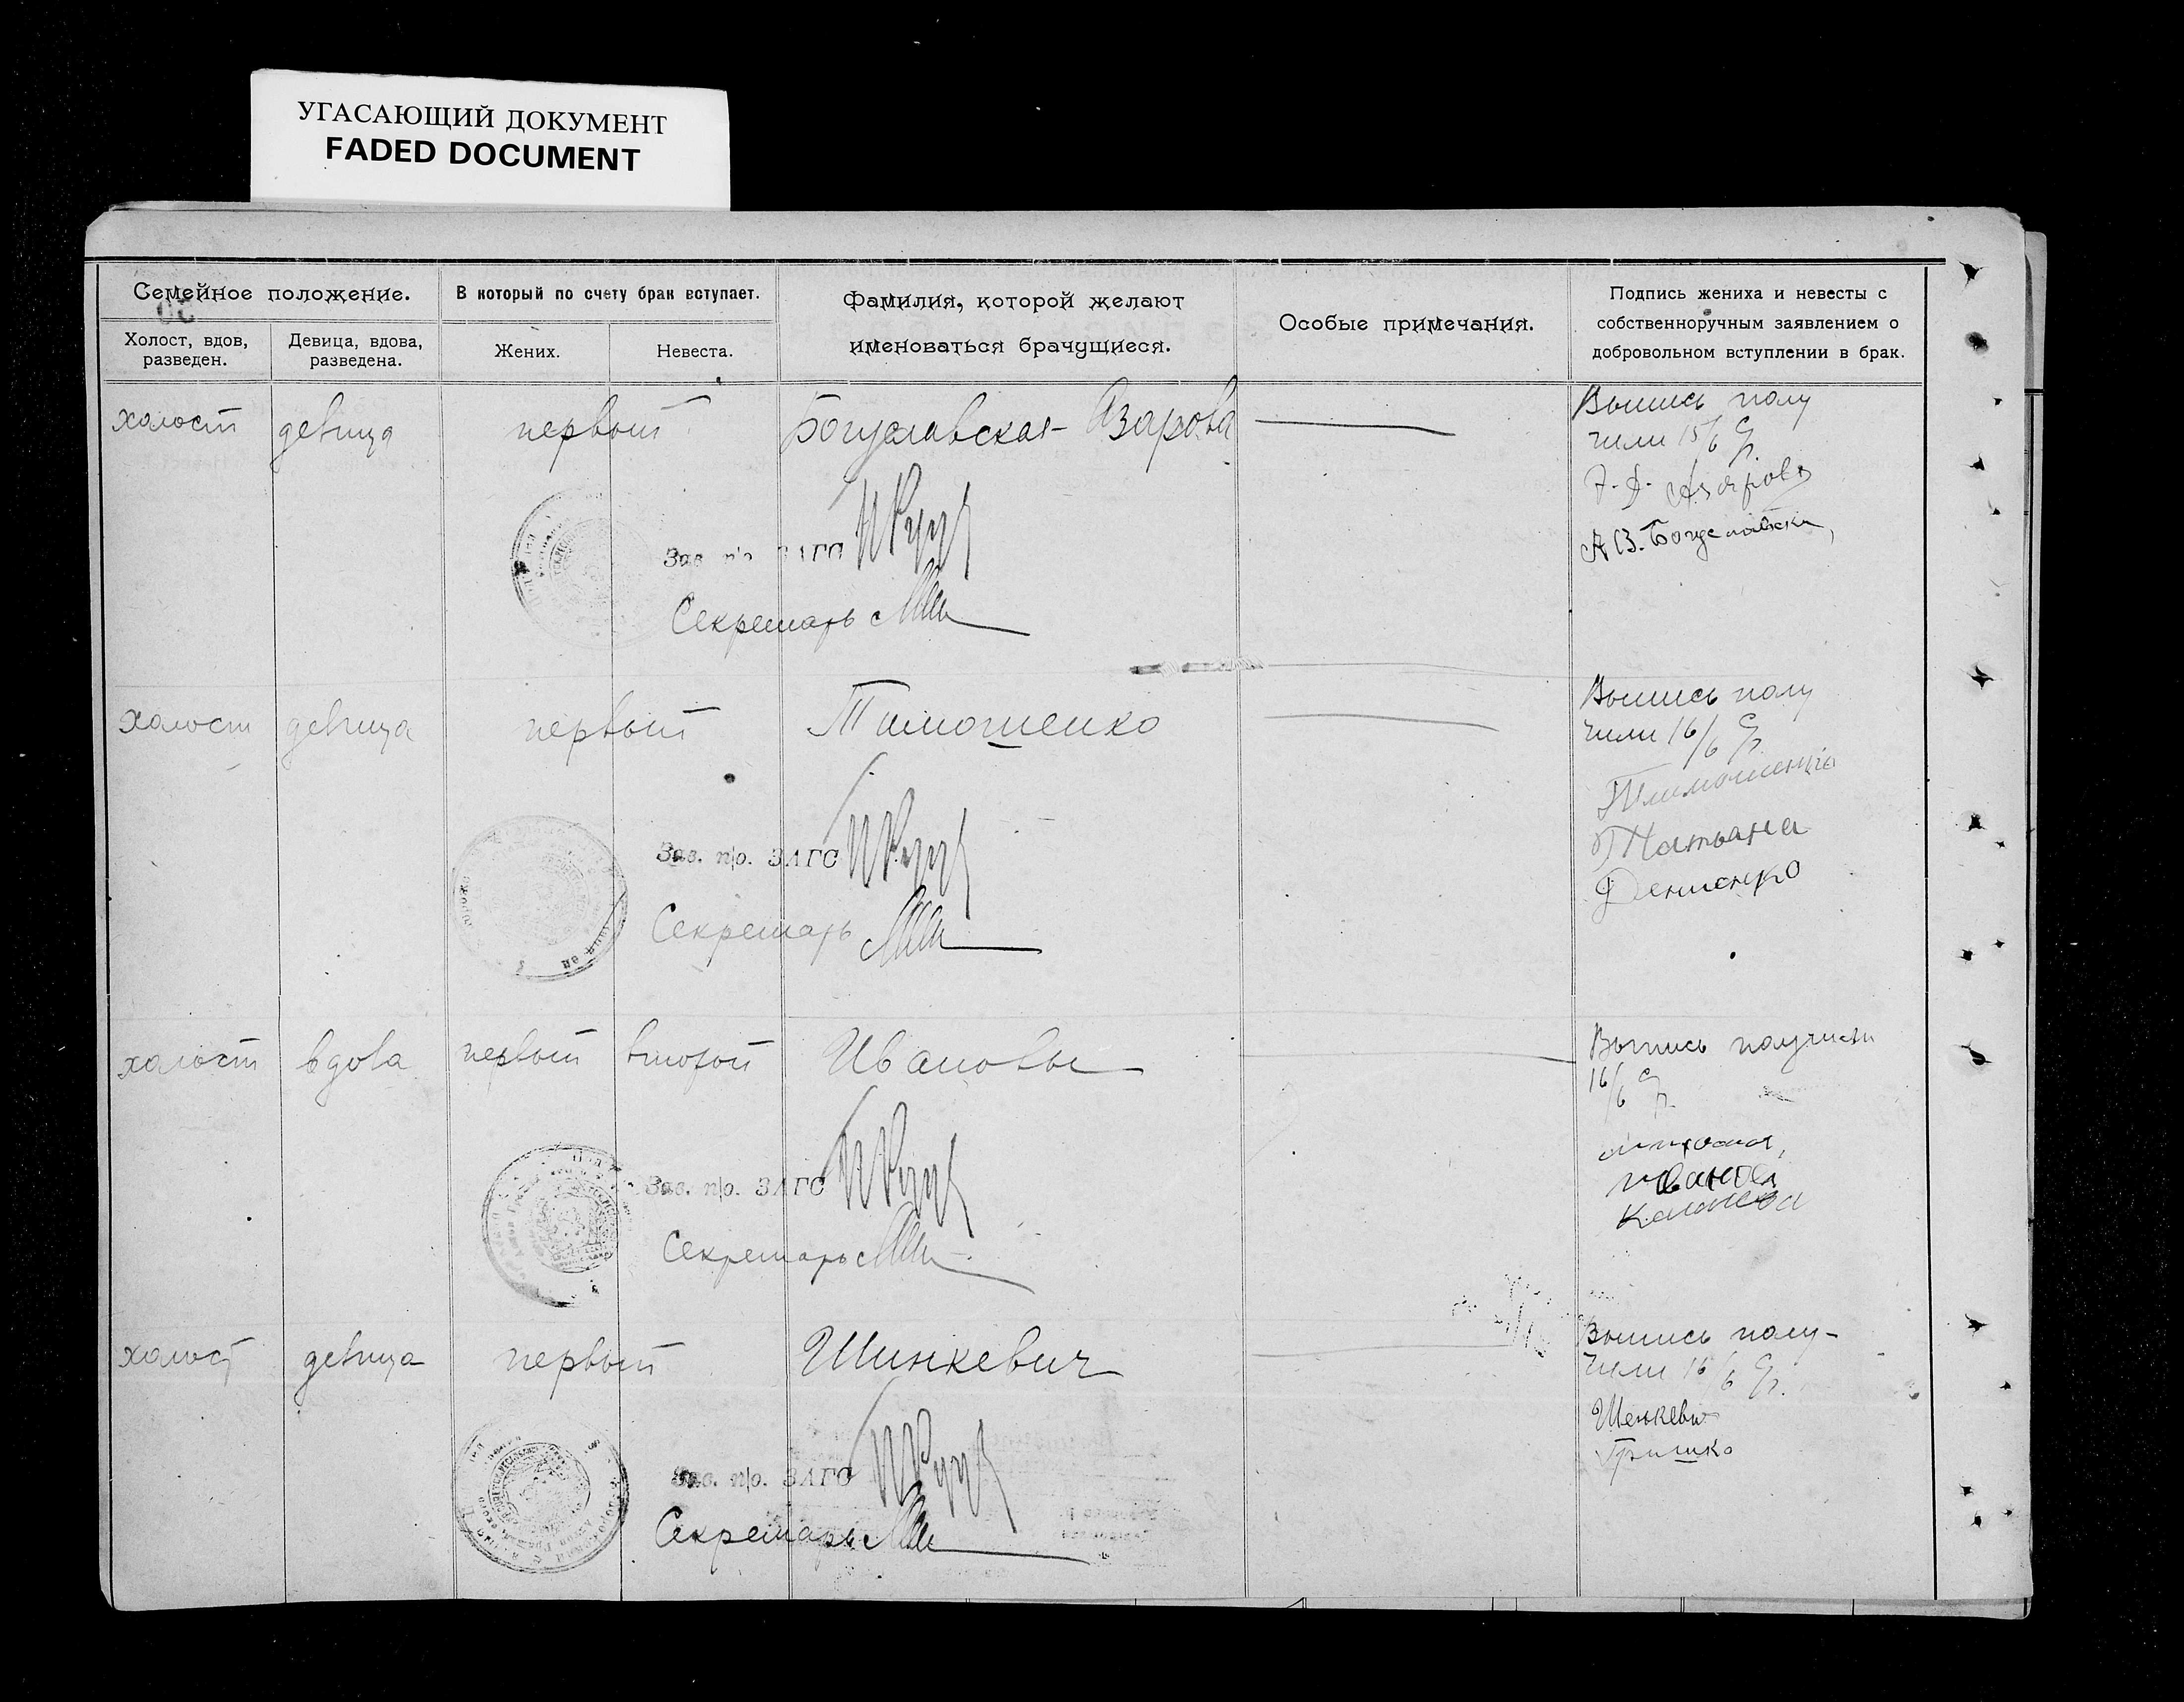 УГАСАЮЩИЙ ДОКУМЕНТ
FADED DOCUMENT
Семейное положение.
В который по счету брак вступает.
Фамилия, которой желают
именоваться брачущиеся.
Особые примечания.
Подпись жениха и невесты с
собственноручным заявлением о
добровольном вступлении в брак.
Холост, вдов,
разведен.
Девица, вдова,
разведена.
Жених.
Невеста.
холост девица первый Богуславская-Азарова
Выпись полу
чили 15/6
Азаров
А В. Богуславска
Зав. п/о ЗАГС
Секретарь
холост девица первый Тимошенко
Выпись полу
чили 16/6
Тимошенко
Татьяна
Денисенко
Зав. п/о. ЗАГС
Секретарь
холост вдова первый второй Ивановы
Выпись получили
16/6
иванов
Зав. п/о. ЗАГС
Секретарь
холост девица первый Шинкевич
Выпись полу-
чили 16/6
Шенкевич
Гришко
Зав. п/о. ЗАГС
Секретарь